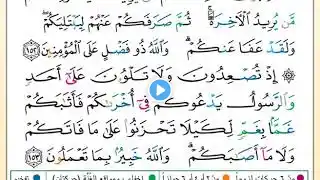 مَّن يُرِيدُ ٱلْأَخِرَةَ ۚ ثُمَّ صَرَفَكُمْ عَنْهُمْ لِيَبْتَلِيَكُمْ ۖ
وَلَقَدْ عَفَا عَنكُمْ ۗ وَٱللَّهُ ذُو فَضْلٍ عَلَى ٱلْمُؤْمِنِينَ ١٥٢
۞ إِذْ تُصْعِدُونَ وَلَا تَلْوُۥنَ عَلَىٰٓ أَحَدٍ
وَٱلرَّسُولُ يَدْعُوكُمْ فِىٓ أُخْرَىٰكُمْ فَأَثَٰبَكُمْ
غَمًّۢا بِغَمٍّ لِّكَيْلَا تَحْزَنُوا۟ عَلَىٰ مَا فَاتَكُمْ
وَلَا مَآ أَصَٰبَكُمْ ۗ وَٱللَّهُ خَبِيرٌۢ بِمَا تَعْمَلُونَ ١٥٣